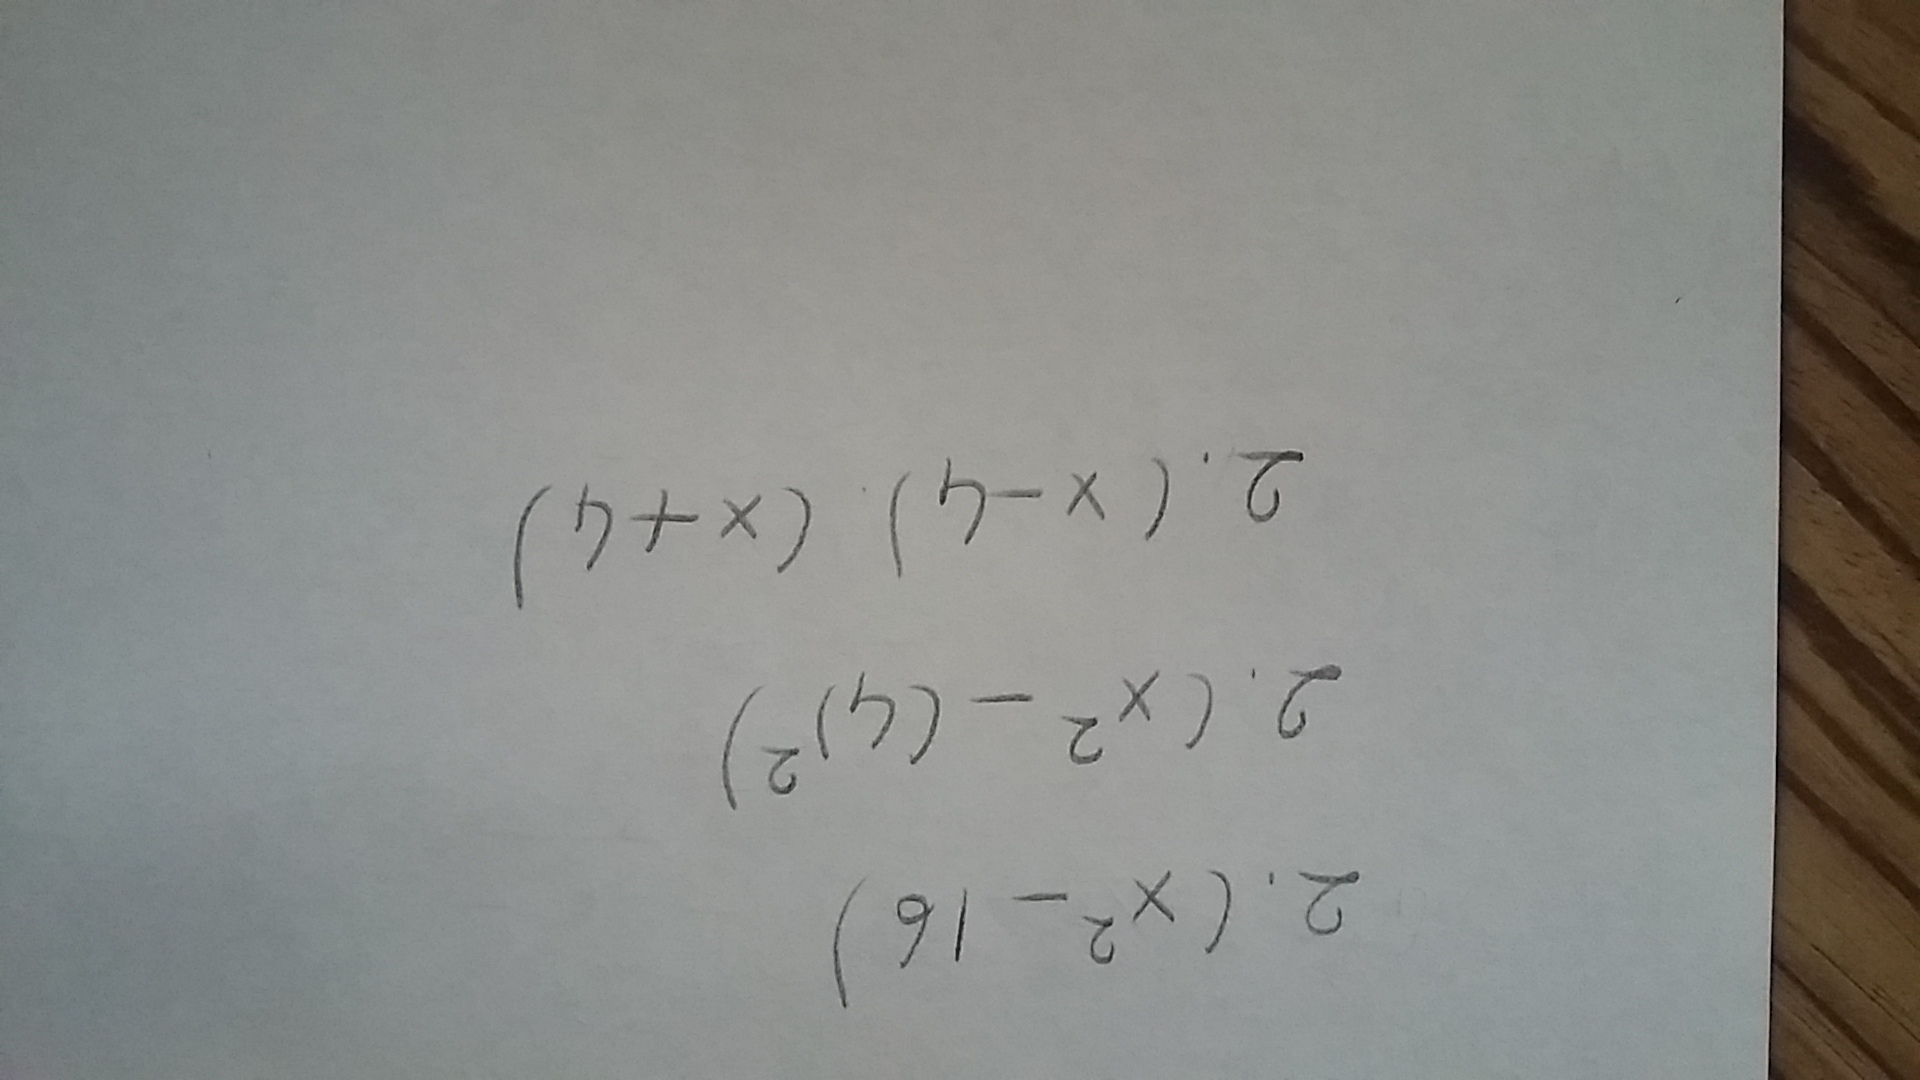 2.(x²-16)
2.(x²-(4)²)
2.(x-4).(x+4)